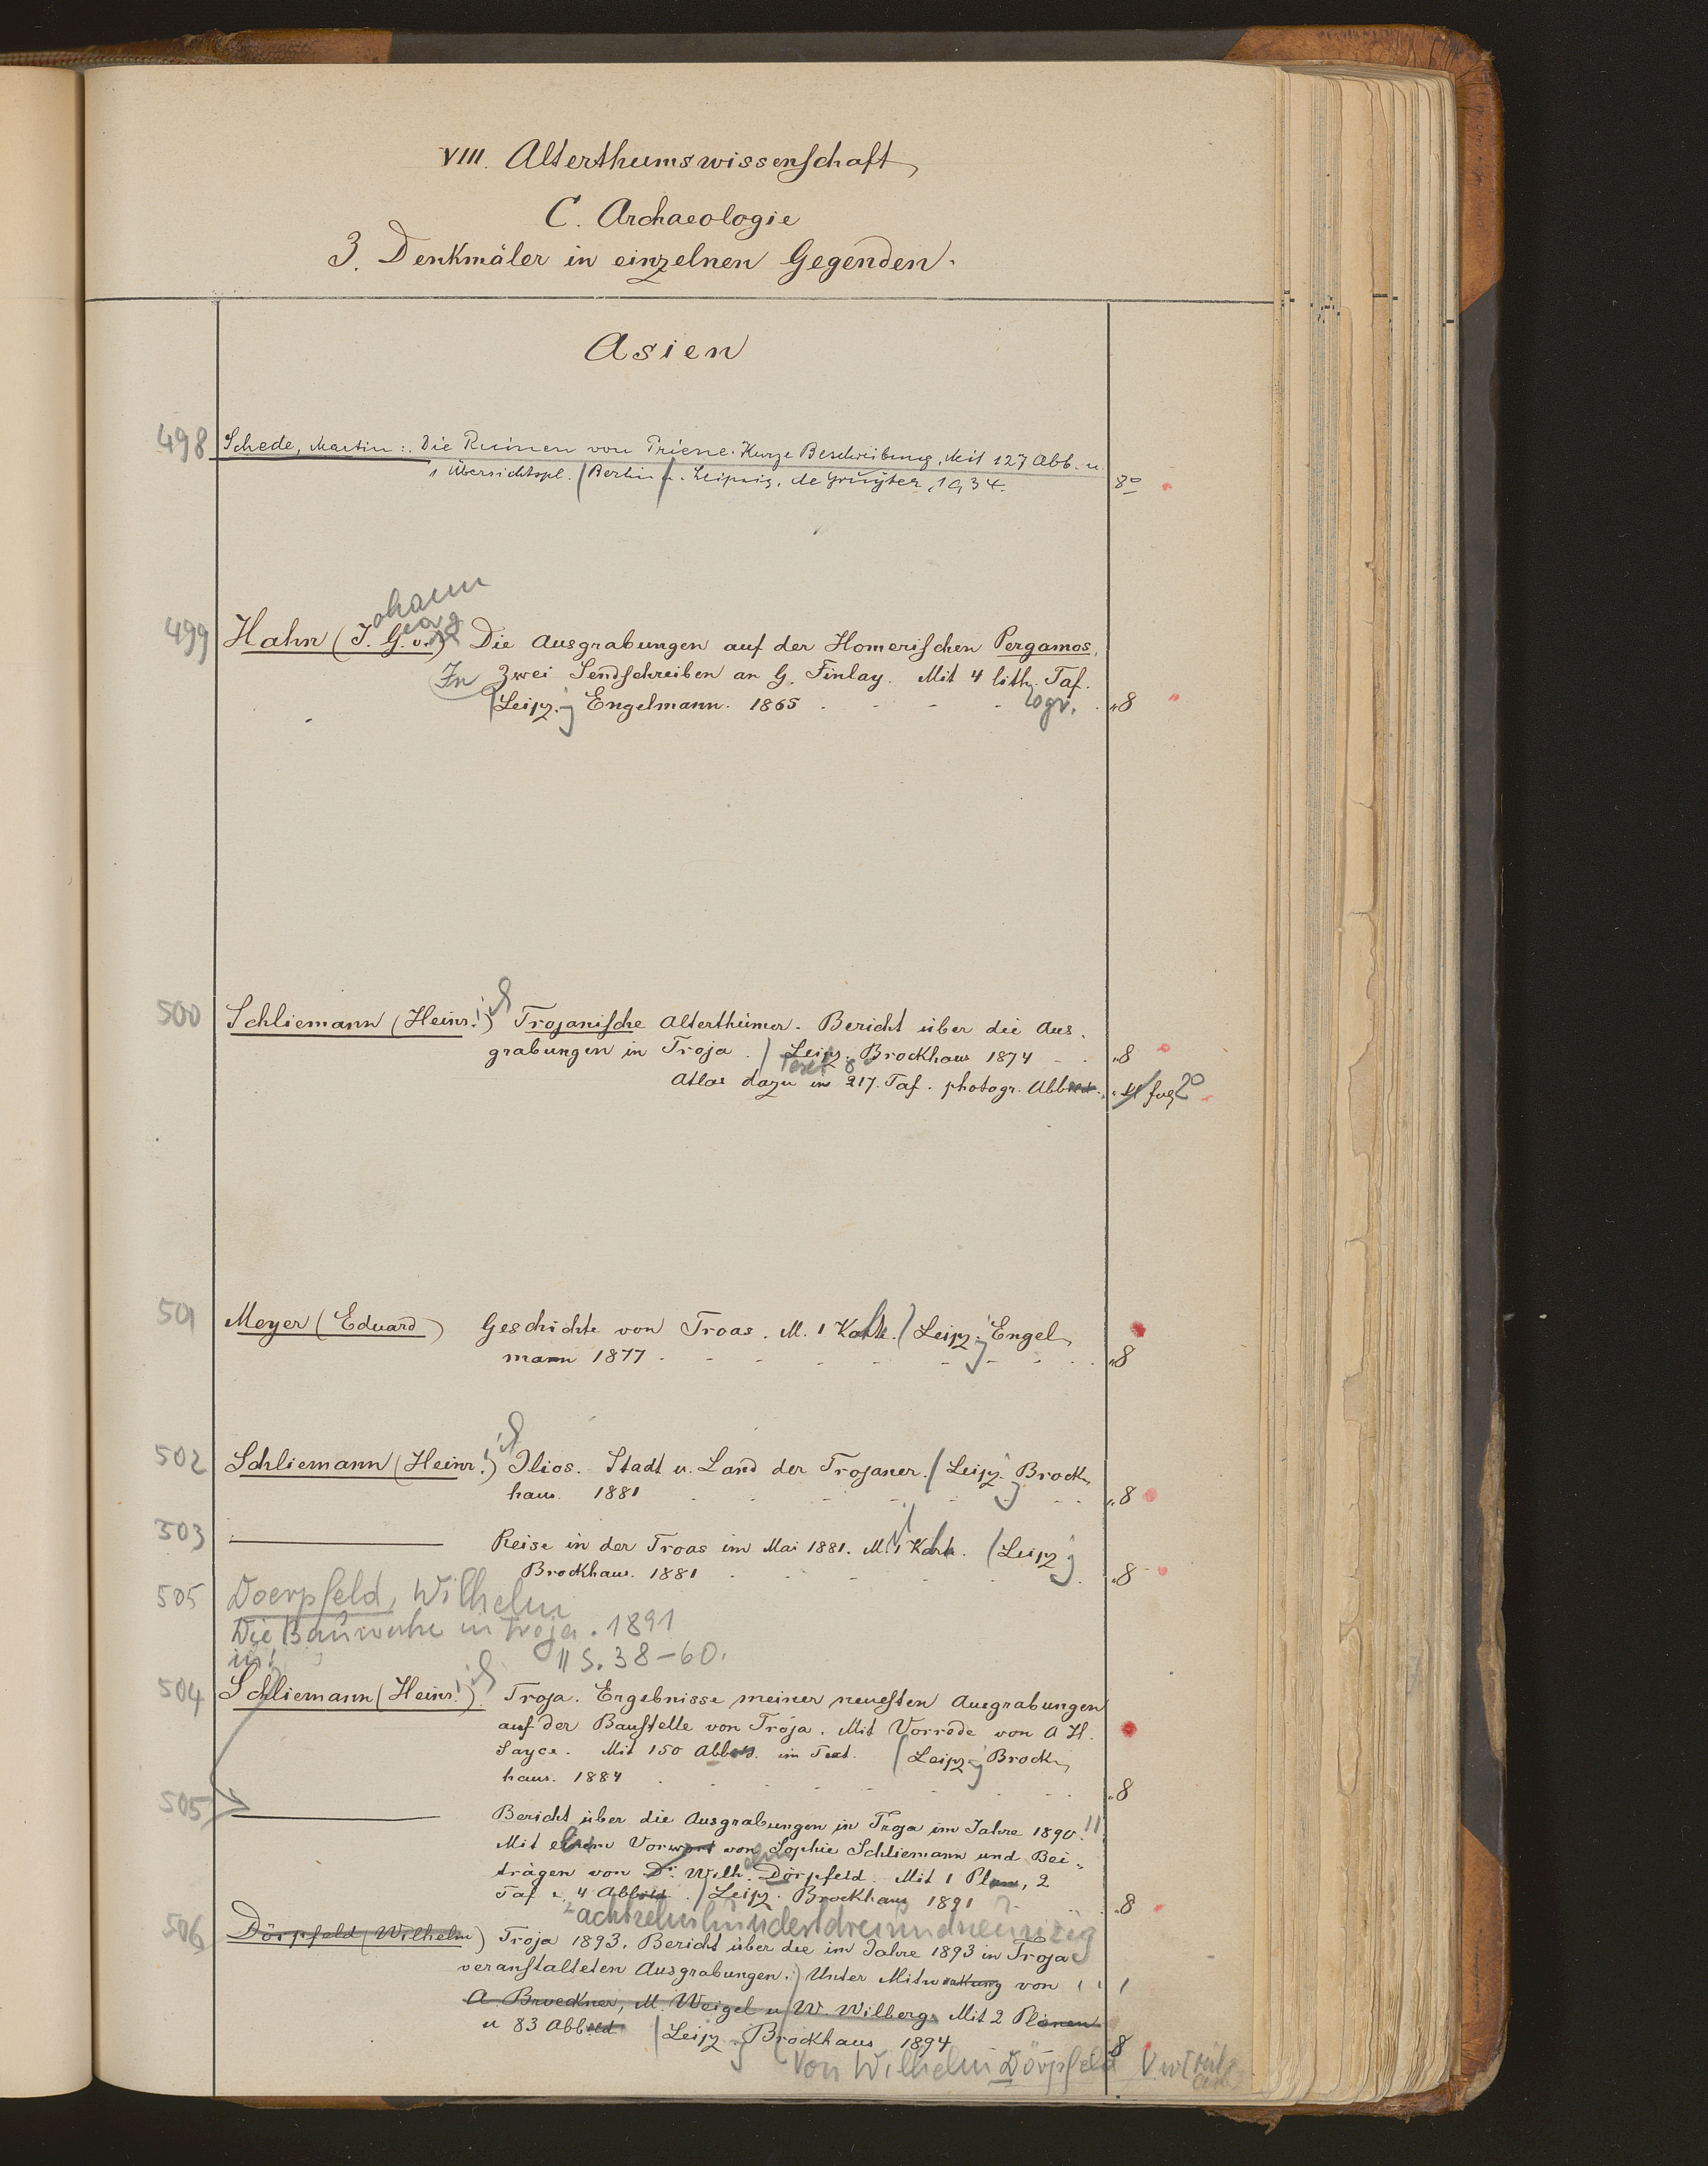 VIII. Alterthumswissenschaft
C. Archaeologie
3. Denkmäler in einzelnen Gegenden.
Asien
498 Schede, Martin: Die Ruinen von Priene. Kurze Beschreibung. Mit 127 Abb. u.
1 Übersichtspl. Berlin u. Leipzig, de Gruyter, 1934. 8°
ohann
eorg
499 Hahn (J. G. v.) Die Ausgrabungen auf der Homerischen Pergamos,
In Zwei Sendschreiben an G. Finlay. Mit 4 lith. Taf.
Leipz. Engelmann. 1865 ogr. „8
500 Schliemann (Heinr.) ich Trojanische Alterthümer. Bericht über die Aus-
grabungen in Troja. Leipz. Brockhaus 1874 „8
Text 8°
Atlas dazu in 217. Taf. photogr. Abbild. 2°
501 Meyer (Eduard) Geschichte von Troas. M. 1 Karte. Leipz. Engel-
mann 1877 „8
502 Schliemann (Heinr.) ich Ilios. Stadt u. Land der Trojaner. Leipz. Brock-
haus. 1881 „8
503 Reise in der Troas im Mai 1881. M. 1 Karte. Leipz
Brockhaus. 1881 „8
505 Doerpfeld, Wilhelm
Die Bauwerke in Troja. 1891
in: S. 38-60.
504 Schliemann (Heinr.) ich Troja. Ergebnisse meiner neuesten Ausgrabungen
auf der Baustelle von Troja. Mit Vorrede von A H.
Sayce. Mit 150 Abbild. im Text. Leipz. Brock-
haus. 1884 „8
505 Bericht über die Ausgrabungen in Troja im Jahre 1890.
Mit einem Vorwort von Sophie Schliemann und Bei-
trägen von Dr. Wilh. Dörpfeld. Mit 1 Plan, 2
Taf u. 4 Abbild. Leipz. Brockhaus 1891 „8
achtzehnhundertdreiundneunzig
506 Dörpfeld (Wilhelm) Troja 1893. Bericht über die im Jahre 1893 in Troja
veranstalteten Ausgrabungen. Unter Mitwirkung von
A. Brueckner, M. Weigel u W. Wilberg. Mit 2 Plänen
u 83 Abbild. Leipz. Brockhaus 1894 8
Von Wilhelm Dörpfeld